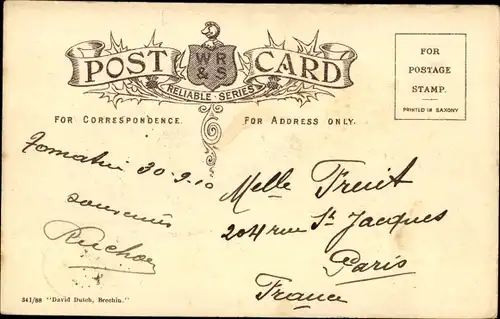 POST CARD
W R
& S
RELIABLE SERIES
FOR CORRESPONDENCE.
FOR ADDRESS ONLY.
FOR
POSTAGE
STAMP.
PRINTED IN SAXONY
30-9-10
souvenirs
Melle Freist
204 rue St Jacques
Paris
France
341/88 "David Dutch, Brechin."